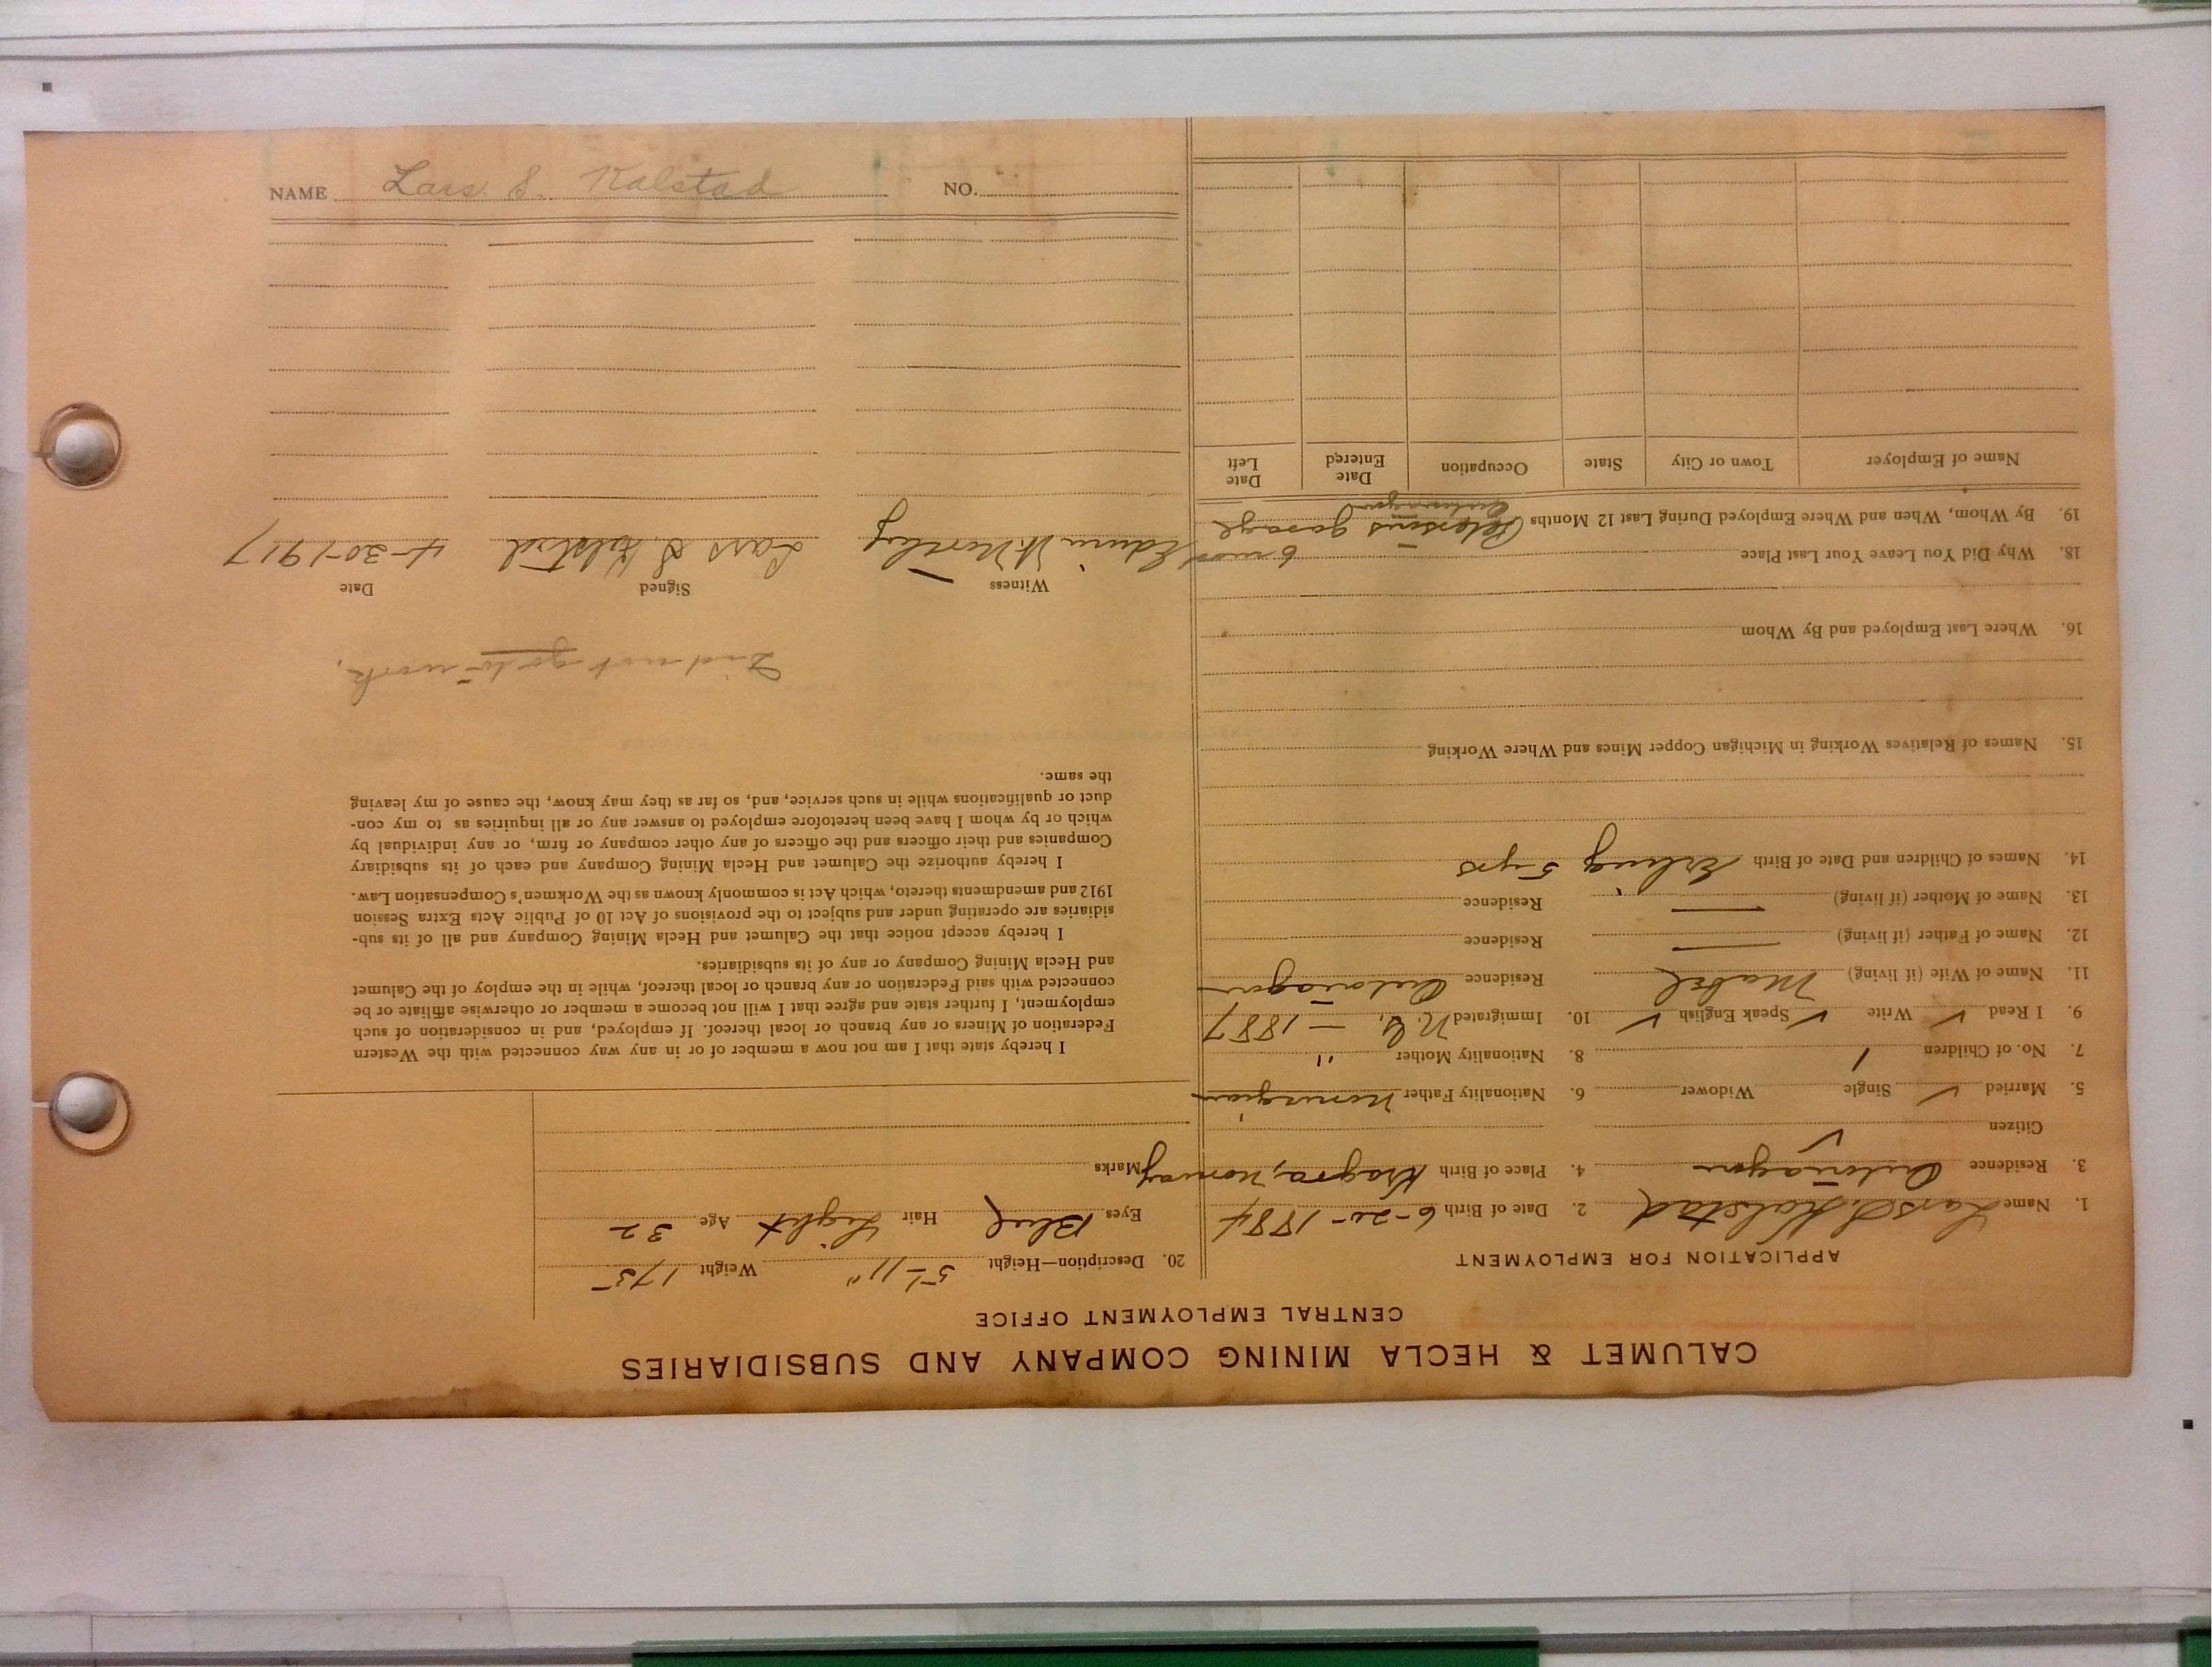 CALUMET & HECLA MINING COMPANY AND SUBSIDIARIES
CENTRAL EMPLOYMENT OFFICE
APPLICATION FOR EMPLOYMENT
1. Name Lars S. Kalstad 2. Date of Birth 6-20-1884
3. Residence Ontonagon 4. Place of Birth Kragro, Norway
Citizen ✓
5. Married ✓ Single Widower 6. Nationality Father Norwegian
7. No. of Children 1 8. Nationality Mother "
9. I Read ✓ Write ✓ Speak English ✓ 10. Immigrated N.Y. — 1887
11. Name of Wife (if living) Mabel Residence Ontonagon
12. Name of Father (if living) — Residence
13. Name of Mother (if living) — Residence
14. Names of Children and Date of Birth Erling 5 yrs
15. Names of Relatives Working in Michigan Copper Mines and Where Working
16. Where Last Employed and By Whom
18. Why Did You Leave Your Last Place
19. By Whom, When and Where Employed During Last 12 Months Petersons garage 6 mos
Ontonagon
Name of Employer Town or City State Occupation Date Entered Date Left
20. Description—Height 5'-11" Weight 175
Eyes Blue Hair Light Age 32
Marks
I hereby state that I am not now a member of or in any way connected with the Western
Federation of Miners or any branch or local thereof. If employed, and in consideration of such
employment, I further state and agree that I will not become a member or otherwise affiliate or be
connected with said Federation or any branch or local thereof, while in the employ of the Calumet
and Hecla Mining Company or any of its subsidiaries.
I hereby accept notice that the Calumet and Hecla Mining Company and all of its sub-
sidiaries are operating under and subject to the provisions of Act 10 of Public Acts Extra Session
1912 and amendments thereto, which Act is commonly known as the Workmen's Compensation Law.
I hereby authorize the Calumet and Hecla Mining Company and each of its subsidiary
Companies and their officers and the officers of any other company or firm, or any individual by
which or by whom I have been heretofore employed to answer any or all inquiries as to my con-
duct or qualifications while in such service, and, so far as they may know, the cause of my leaving
the same.
Did not go to work.
Witness Signed Date
Edwin W. Northey Lars S. Kalstad 4-30-1917
NAME Lars S. Kalstad NO.